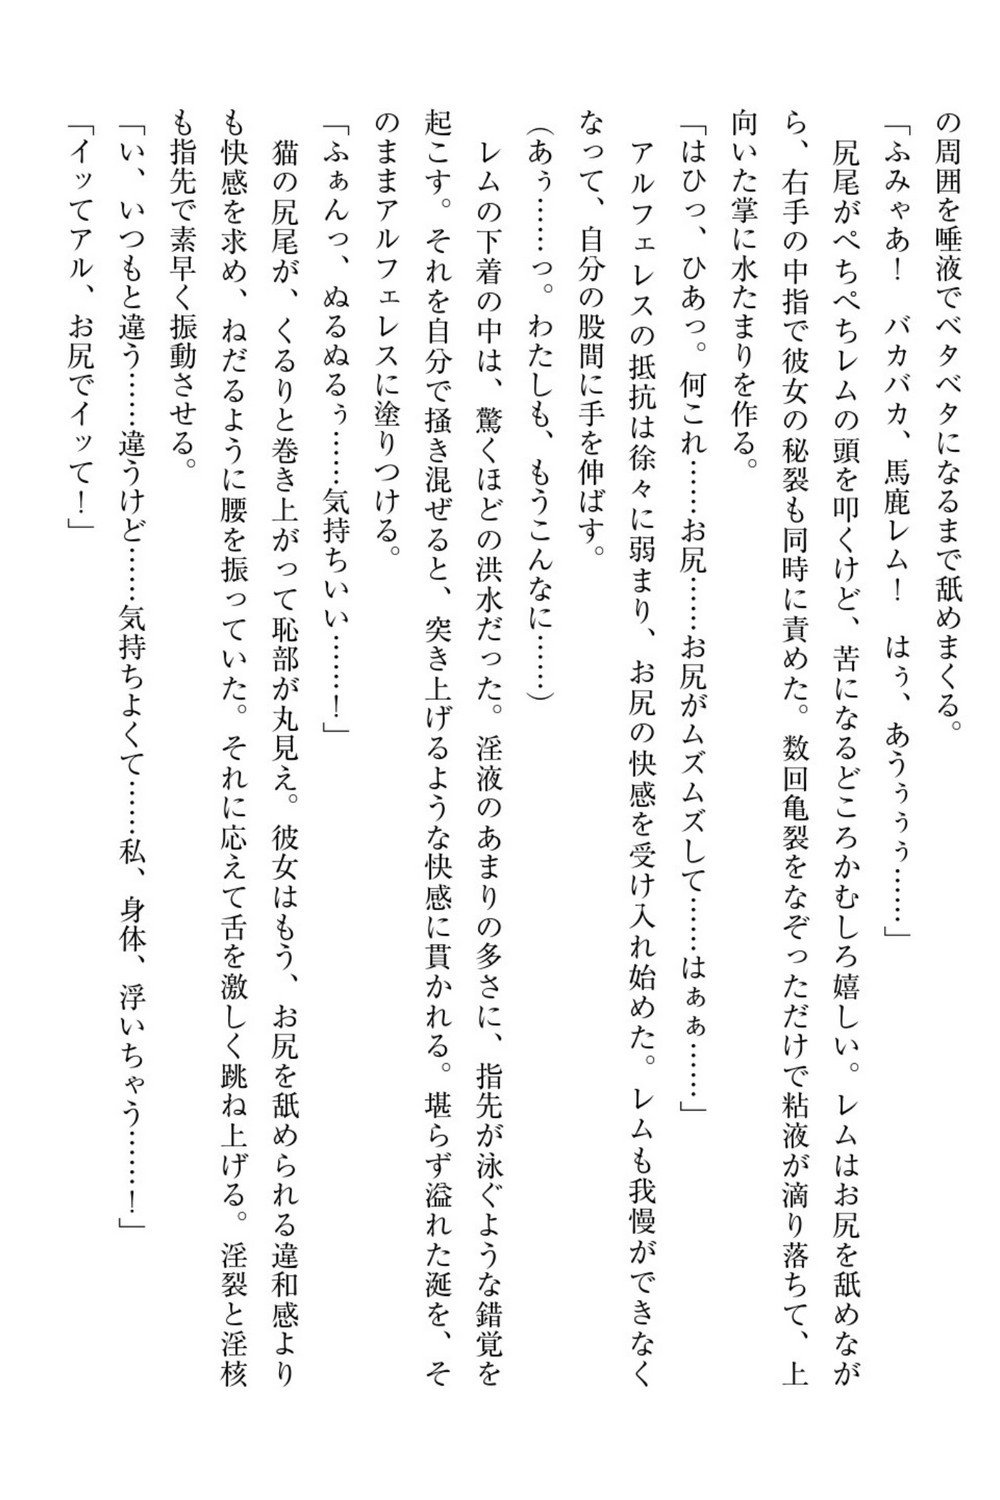 の周囲を唾液でベタベタになるまで舐めまくる。
「ふみゃあ！　バカバカ、馬鹿レム！　はぅ、あうぅぅぅ……」
　尻尾がぺちぺちレムの頭を叩くけど、苦になるどころかむしろ嬉しい。レムはお尻を舐めなが
ら、右手の中指で彼女の秘裂も同時に責めた。数回亀裂をなぞっただけで粘液が滴り落ちて、上
向いた掌に水たまりを作る。
「はひっ、ひあっ。何これ……お尻……お尻がムズムズして……はぁぁ……」
　アルフェレスの抵抗は徐々に弱まり、お尻の快感を受け入れ始めた。レムも我慢ができなく
なって、自分の股間に手を伸ばす。
（あぅ……っ。わたしも、もうこんなに……）
　レムの下着の中は、驚くほどの洪水だった。淫液のあまりの多さに、指先が泳ぐような錯覚を
起こす。それを自分で掻き混ぜると、突き上げるような快感に貫かれる。堪らず溢れた涎を、そ
のままアルフェレスに塗りつける。
「ふぁんっ、ぬるぬるぅ……気持ちいい……！」
　猫の尻尾が、くるりと巻き上がって恥部が丸見え。彼女はもう、お尻を舐められる違和感より
も快感を求め、ねだるように腰を振っていた。それに応えて舌を激しく跳ね上げる。淫裂と淫核
も指先で素早く振動させる。
「い、いつもと違う……違うけど……気持ちよくて……私、身体、浮いちゃう……！」
「イッてアル、お尻でイッて！」